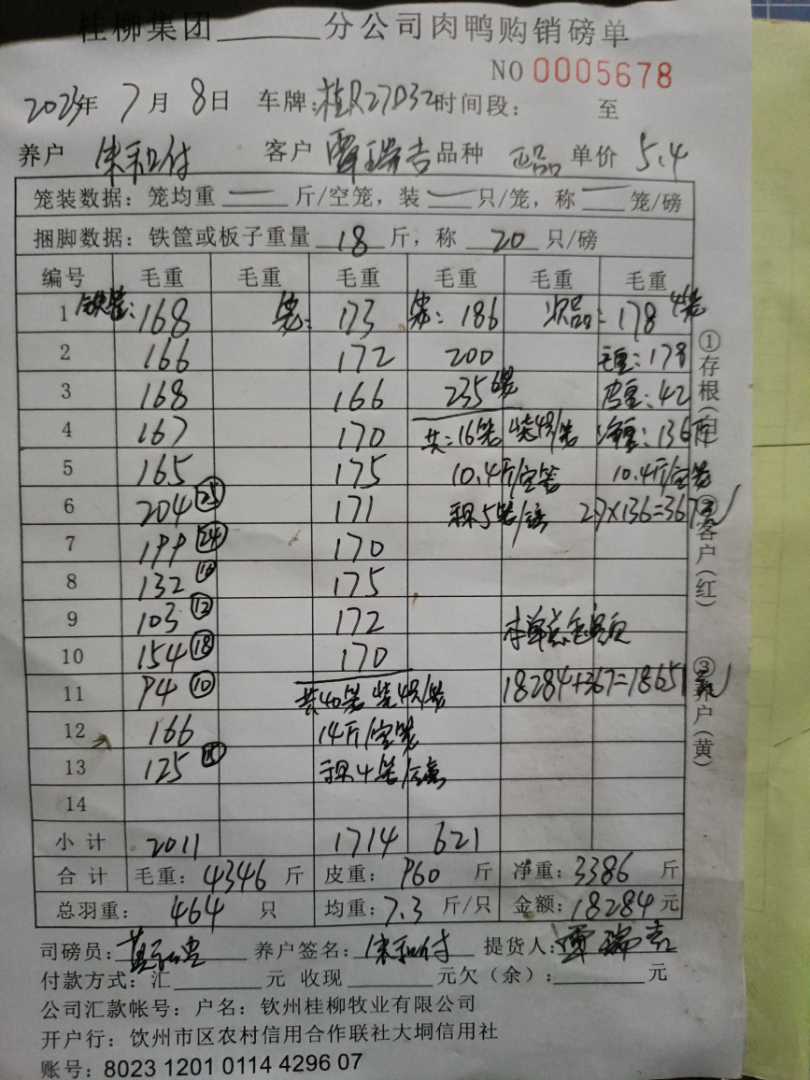 桂柳集团______分公司肉鸭购销磅单
NO 0005678
2023年 7月 8日 车牌:桂R27D32 时间段: 至
养户 朱和付 客户 覃瑞吉 品种 正品 单价 5.4
笼装数据: 笼均重 — 斤/空笼, 装 — 只/笼, 称 — 笼/磅
捆脚数据: 铁筐或板子重量 18 斤, 称 20 只/磅
编号 毛重 毛重 毛重 毛重 毛重 毛重
1 铁筐:168 笼: 173 笼: 186 次品:178 4笼
2 166 172 200 毛重:178
3 168 166 235 6笼 皮重:42
4 167 170 共:16笼 装4只/笼 净重:136斤
5 165 175 10.4斤/空笼 10.4斤/空笼
6 204 25 171 5笼/磅 2.7×136=367元
7 199 24 170
8 132 175
9 103 12 172
10 154 18 170
11 94 10 共40笼 装4只/笼 18284+367=18651元
12 166 14斤/空笼
13 125 4笼/磅
14
小计 2011 1714 621
合计 毛重: 4346 斤 皮重: 960 斤 净重: 3386 斤
总羽重: 464 只 均重: 7.3 斤/只 金额: 18284 元
司磅员: 养户签名: 朱和付 提货人: 覃瑞吉
付款方式: 汇______元 收现______元欠(余):______元
公司汇款帐号: 户名: 钦州桂柳牧业有限公司
开户行: 饮州市区农村信用合作联社大垌信用社
账号: 8023 1201 0114 4296 07
①存根(白)
②客户(红)
③养户(黄)